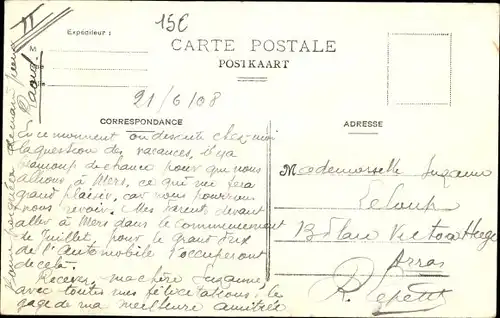 II
15c
Expéditeur :
M
CARTE POSTALE
POSTKAART
21/6/08
CORRESPONDANCE
ADRESSE
En ce moment on discute chez moi
la question des vacances, il y a
beaucoup de chance pour que nous
allions à Mers, ce qui me fera
grand plaisir, car nous pourrons
nous revoir. Mes parents devant
aller à Mers dans le commencement
de Juillet, pour le Grand Prix
de l'Automobile s'occuperont
de cela.
Recevez, ma chère Suzanne,
avec toutes mes félicitations, le
gage de ma meilleure amitiée
Mademoiselle Suzanne
Leloup
13 Place Victor Hugo
Arras